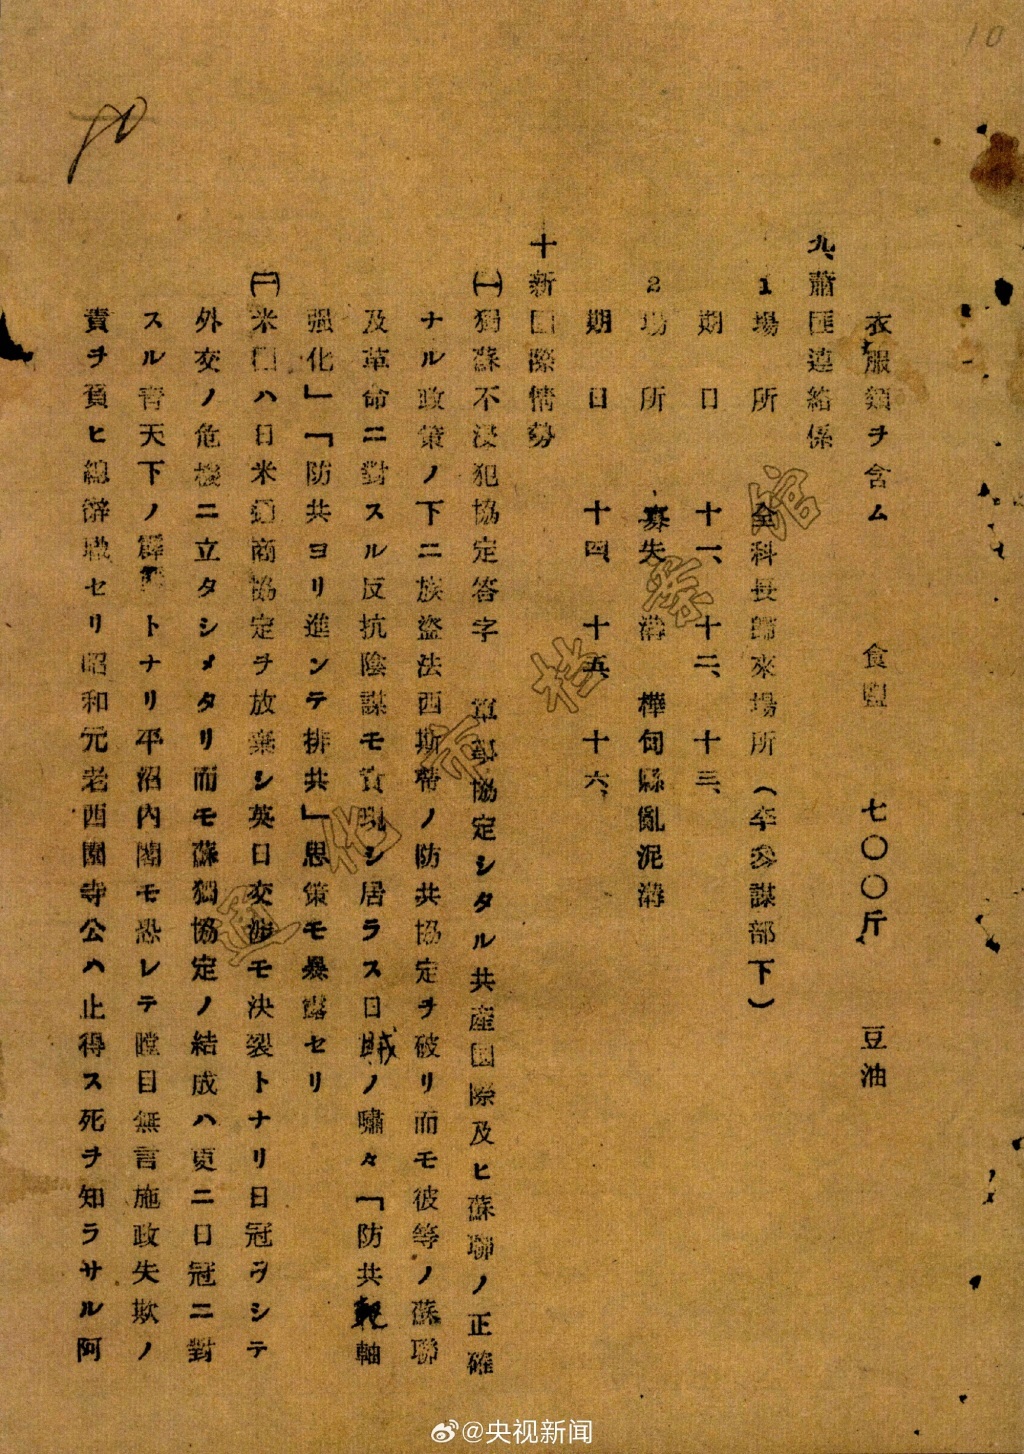 10
衣服類ヲ含ム 食鹽 七〇〇斤 豆油
九、蕭匪連絡係
1 場所 全科長歸來場所(李參謀部下)
期日 十一、十二、十三、
2 場所 失溝 樺甸縣亂泥溝
期日 十四、十五、十六、
十 新国際情勢
㈠獨蘇不浸犯協定答字 協定シタル共產国際及ヒ蘇聯ノ正確
ナル政策ノ下ニ族盜法西斯帶ノ防共協定ヲ破リ而モ彼等ノ蘇聯
及革命ニ對スル反抗陰謀モ實現シ居ラス日賊ノ嘯々「防共軸
强化」「防共ヨリ進ンテ排共」思策モ暴露セリ
㈡米国ハ日米通商協定ヲ放棄シ英日交涉モ決裂トナリ日冠ヲシテ
外交ノ危機ニ立タシメタリ而モ蘇獨協定ノ結成ハ更ニ日冠ニ對
スル青天下ノ霹トナリ平沼內閣モ恐レテ瞠目無言施政失欺ノ
責ヲ負ヒ總辭職セリ昭和元老西園寺公ハ止得ス死ヲ知ラサル阿
通化市档案馆
@央视新闻